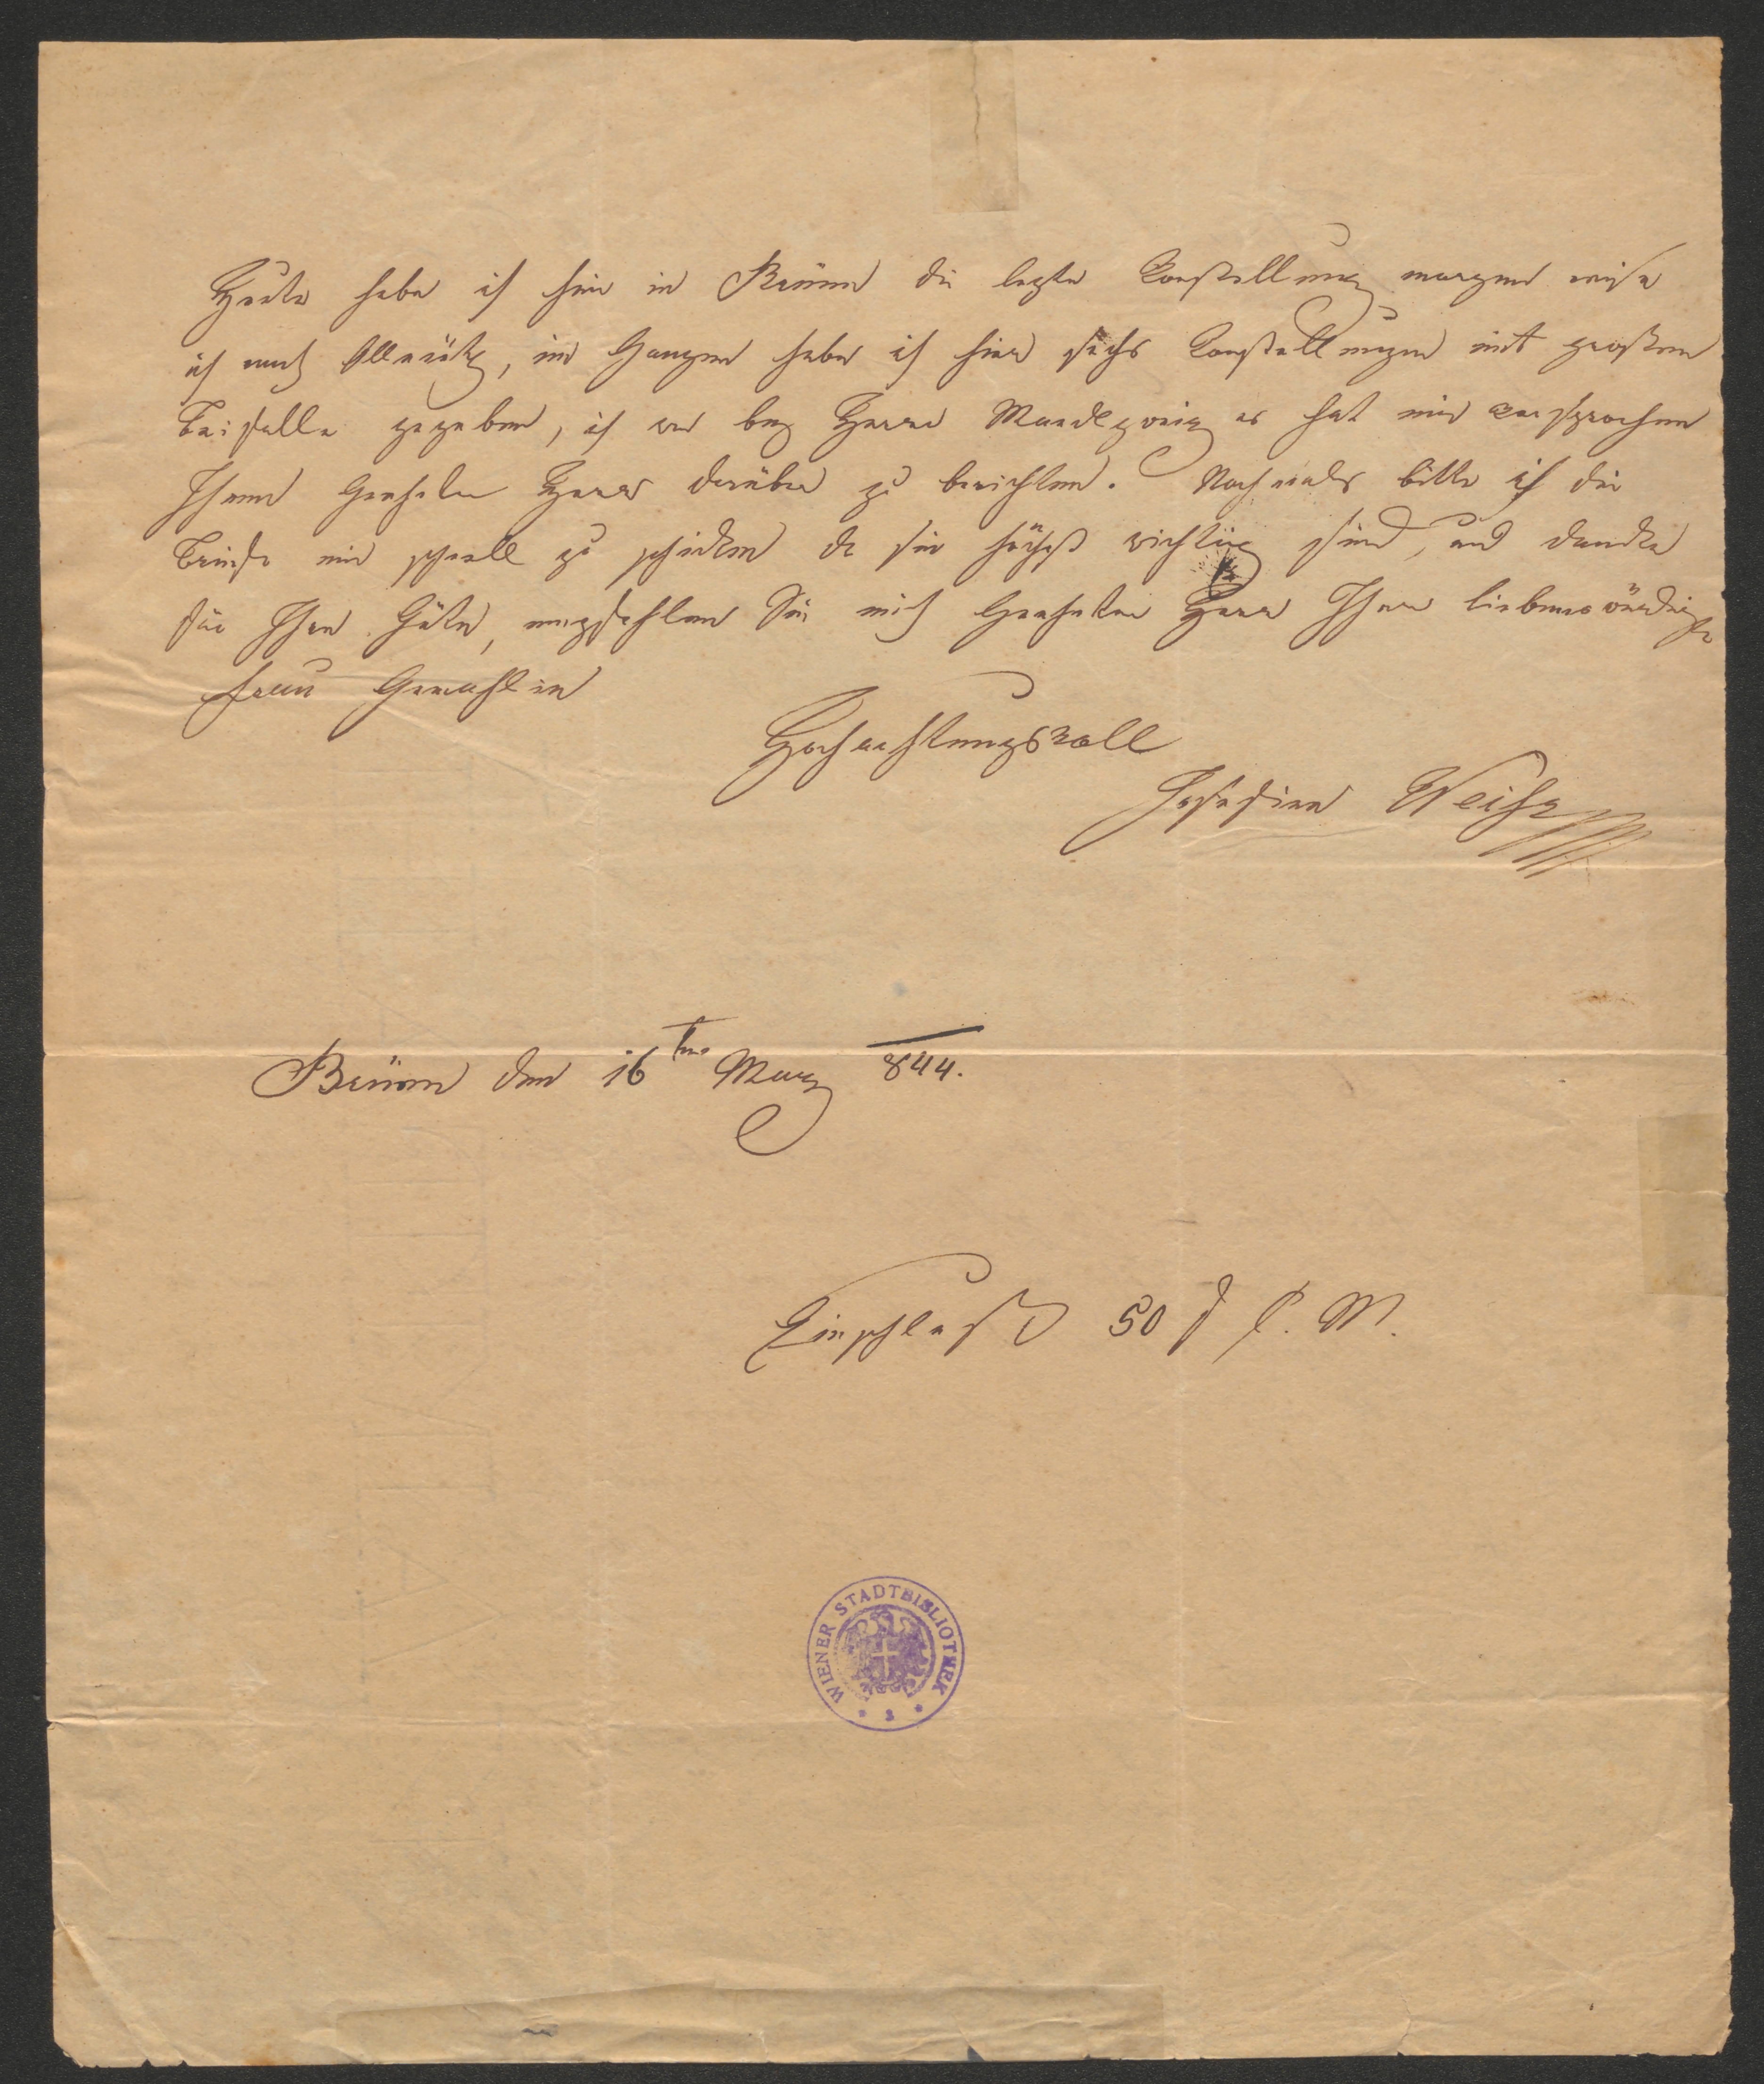 Heute habe ich hier in Brünn die lezte Vorstellung morgen reise
ich nach Ollmütz, im Ganzen habe ich hier sechs Vorstellungen mit großem
Beifalle gegeben, ich war bey Herrn er hat mir versprochen
Ihnen Geehrter Herr darüber zu berichten. Nochmals bitte ich die
Briefe mir schnell zu schicken da sie höchst wichtig sind, und dancke
für Ihre Güte, empfehlen Sie mich Geehrter Herr Ihrer liebenswürdigen
Frau Gemahlin
Hochachtungsvoll
Josefine Weiß
Brünn den 16ten März 844.
Einschluß 50 f C. M.
WIENER STADTBIBLIOTHEK